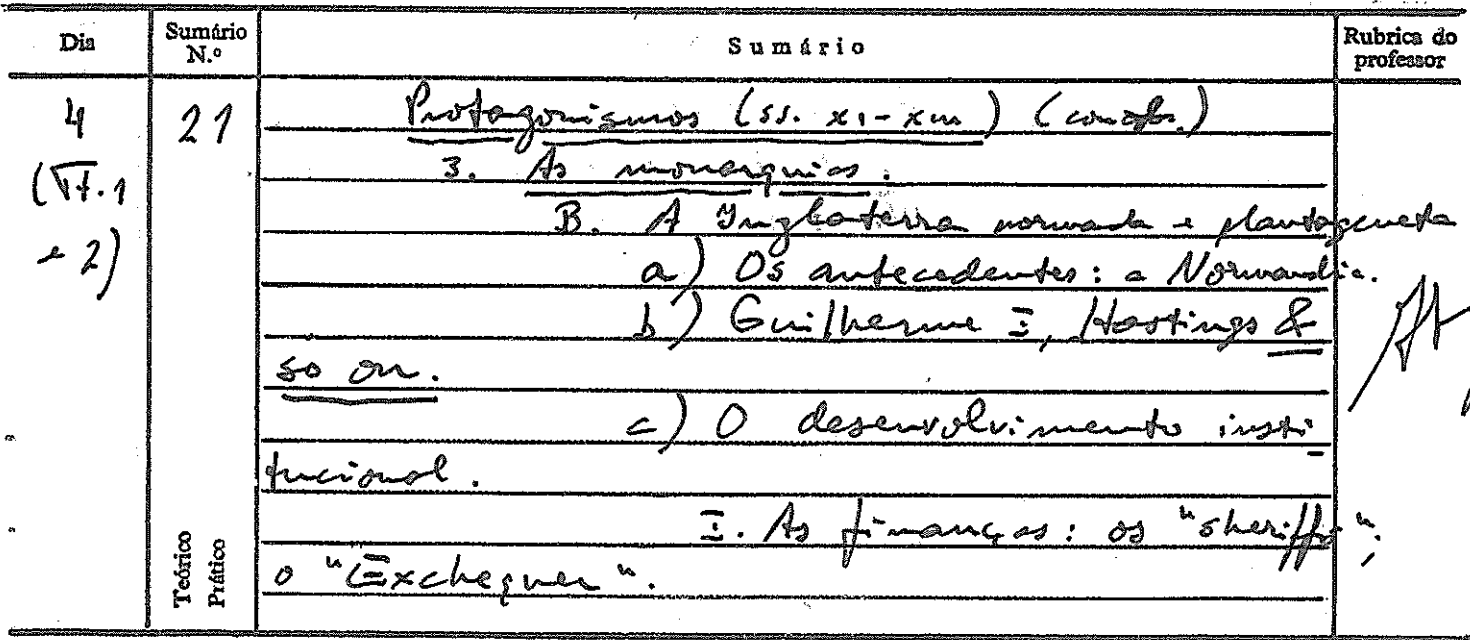 Dia
Sumário N.º
Sumário
Rubrica do professor
4
21
Protagonismos (ss. XI-XIII)
3. As monarquias.
(1 e 2)
B. A Inglaterra normanda e plantageneta
a) Os antecedentes: a Normandia.
b) Guilherme I, Hastings &
so on.
c) O desenvolvimento insti-
tucional.
I. As finanças: os "sheriffs",
o "Exchequer".
Teórico
Prático